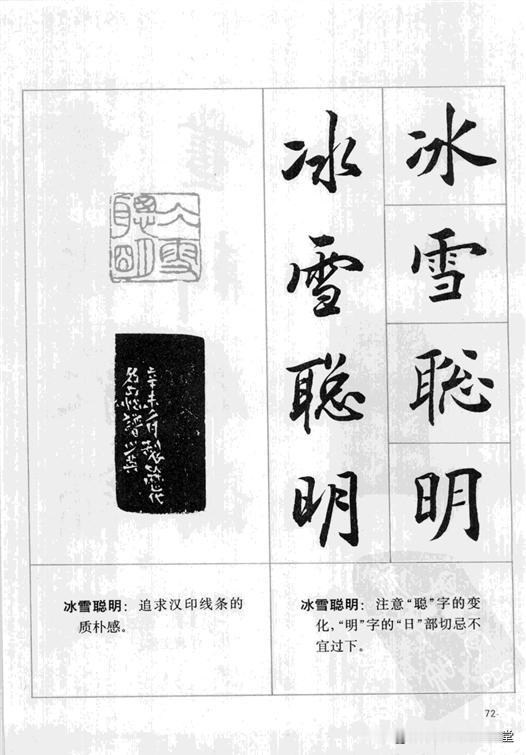 冰雪聪明
冰雪聪明
仌雪
聰明
冰雪聪明：追求汉印线条的
质朴感。
冰雪聪明：注意“聪”字的变
化，“明”字的“日”部切忌不
宜过下。
72-
堂